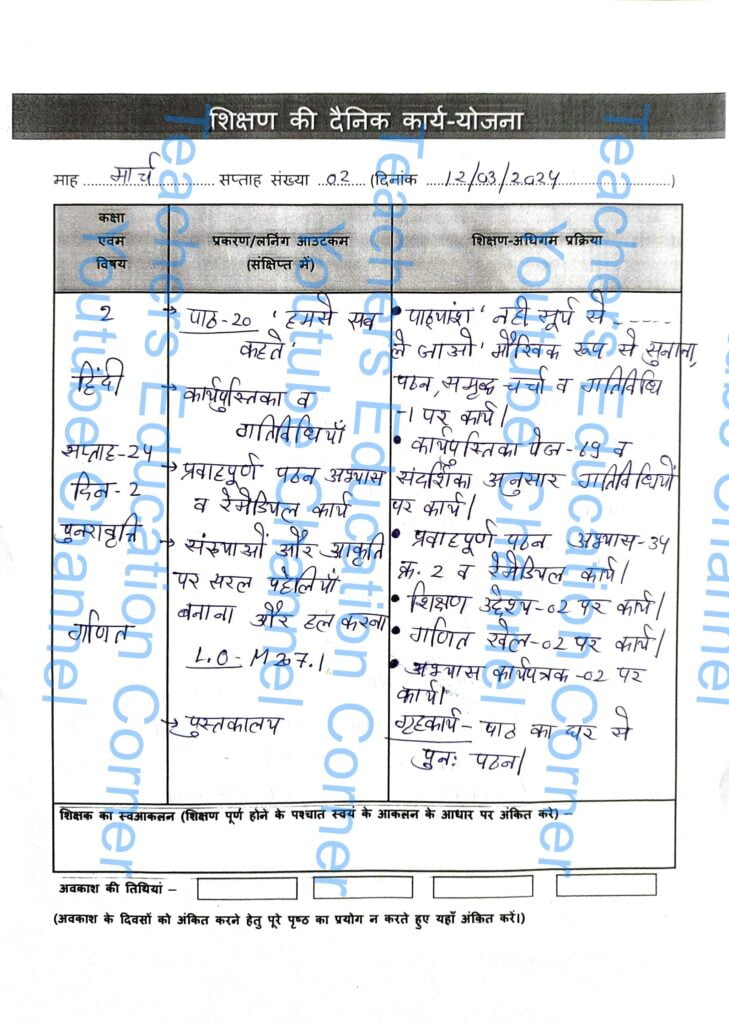 शिक्षण की दैनिक कार्य-योजना
माह ...मार्च... सप्ताह संख्या ..02... (दिनांक ...12/03/2024...)
कक्षा
एवम
विषय
प्रकरण/लर्निंग आउटकम
(संक्षिप्त में)
शिक्षण-अधिगम प्रक्रिया
2
हिंदी
सप्ताह-24
दिन-2
पुनरावृत्ति
गणित
→ पाठ-20 'हमसे सब
कहते'
→ कार्यपुस्तिका व
गतिविधियाँ
→ प्रवाहपूर्ण पठन अभ्यास
व रेमेडियल कार्य
→ संख्याओं और आकृति
पर सरल पहेलियाँ
बनाना और हल करना
L.O- M207.1
→ पुस्तकालय
• पाठ्यांश 'नही सूर्य से -----
ले जाओ' मौखिक रूप से सुनाना,
पठन, समृद्ध चर्चा व गतिविधि
-1 पर कार्य।
• कार्यपुस्तिका पेज-69 व
संदर्शिका अनुसार गतिविधियों
पर कार्य।
• प्रवाहपूर्ण पठन अभ्यास-34
क्र. 2 व रेमेडियल कार्य।
• शिक्षण उद्देश्य-02 पर कार्य।
• गणित खेल-02 पर कार्य।
• अभ्यास कार्यपत्रक-02 पर
कार्य।
गृहकार्य- पाठ का घर से
पुनः पठन।
शिक्षक का स्वआकलन (शिक्षण पूर्ण होने के पश्चात स्वयं के आकलन के आधार पर अंकित करें) –
अवकाश की तिथियां –
(अवकाश के दिवसों को अंकित करने हेतु पूरे पृष्ठ का प्रयोग न करते हुए यहाँ अंकित करें।)
Teachers Education Corner
Youtube Channel
Teachers Education Corner
Youtube Channel
Teachers Education Corner
Youtube Channel